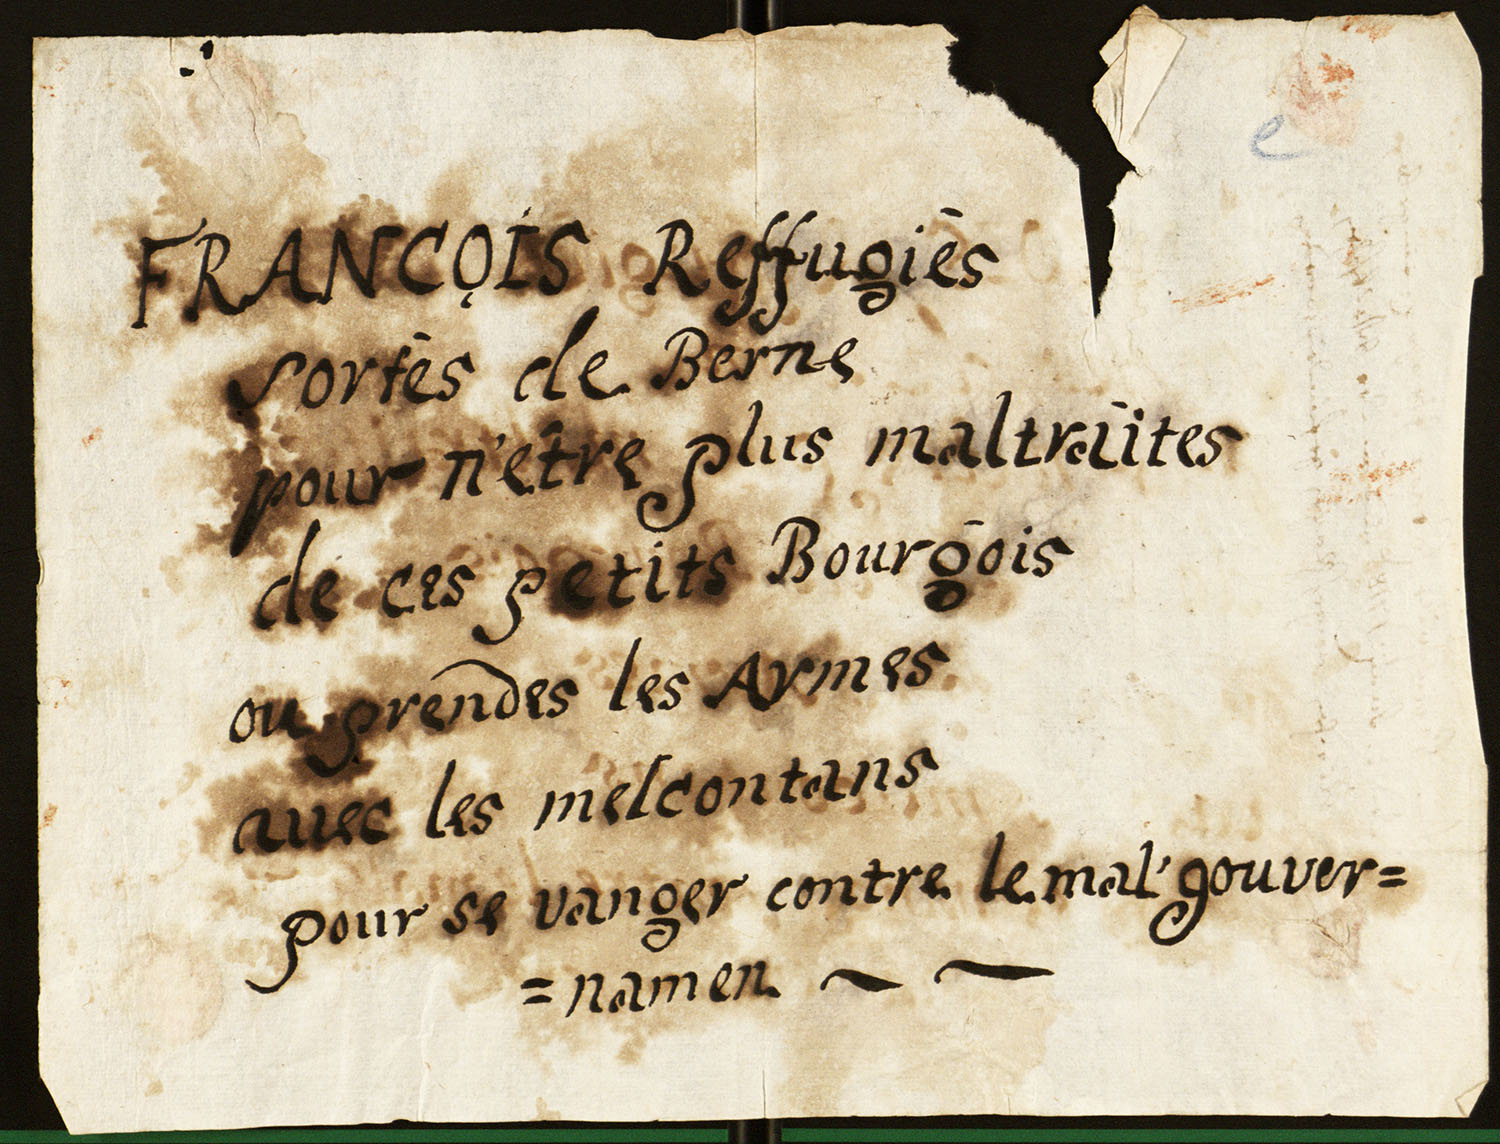 FRANCOIS Reffugiēs
sortēs de Berne
pour n'etre plus maltraites
de ces petits Bourgois
ou prendes les Armes
auec les melcontans
pour se vanger contre le mal' gouver=
=namen
e